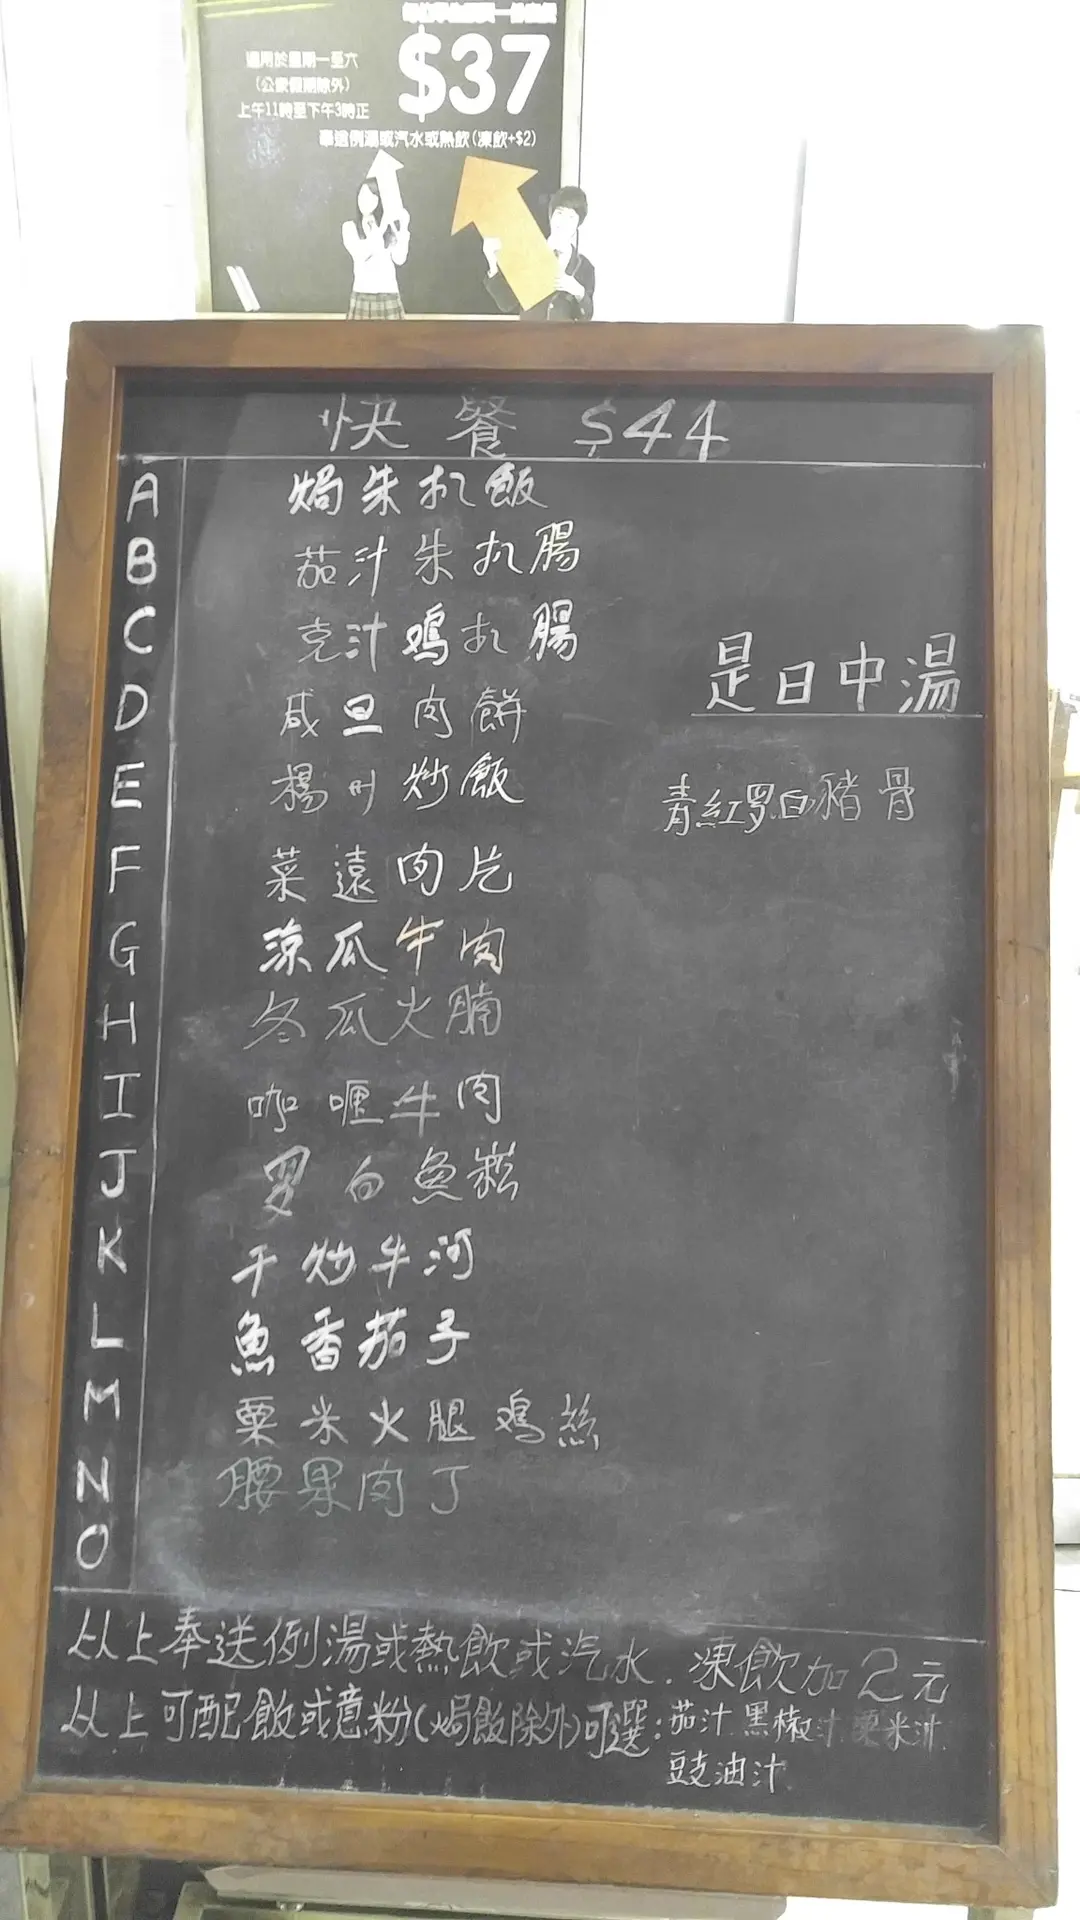 $37
適用於星期一至六
(公眾假期除外)
上午11時至下午3時正
奉送例湯或汽水或熱飲(凍飲+$2)
快餐 $44
A 焗朱扒飯
B 茄汁朱扒腸
C 克汁鸡扒腸
D 咸旦肉餅
E 楊州炒飯
F 菜遠肉片
G 涼瓜牛肉
H 冬瓜火腩
I 咖喱牛肉
J 罗白魚崧
K 干炒牛河
L 魚香茄子
M 粟米火腿鸡絲
N 腰果肉丁
O
是日中湯
青紅罗白豬骨
以上奉送例湯或熱飲或汽水.凍飲加2元
以上可配飯或意粉(焗飯除外)可選:茄汁 黑椒汁 粟米汁
豉油汁